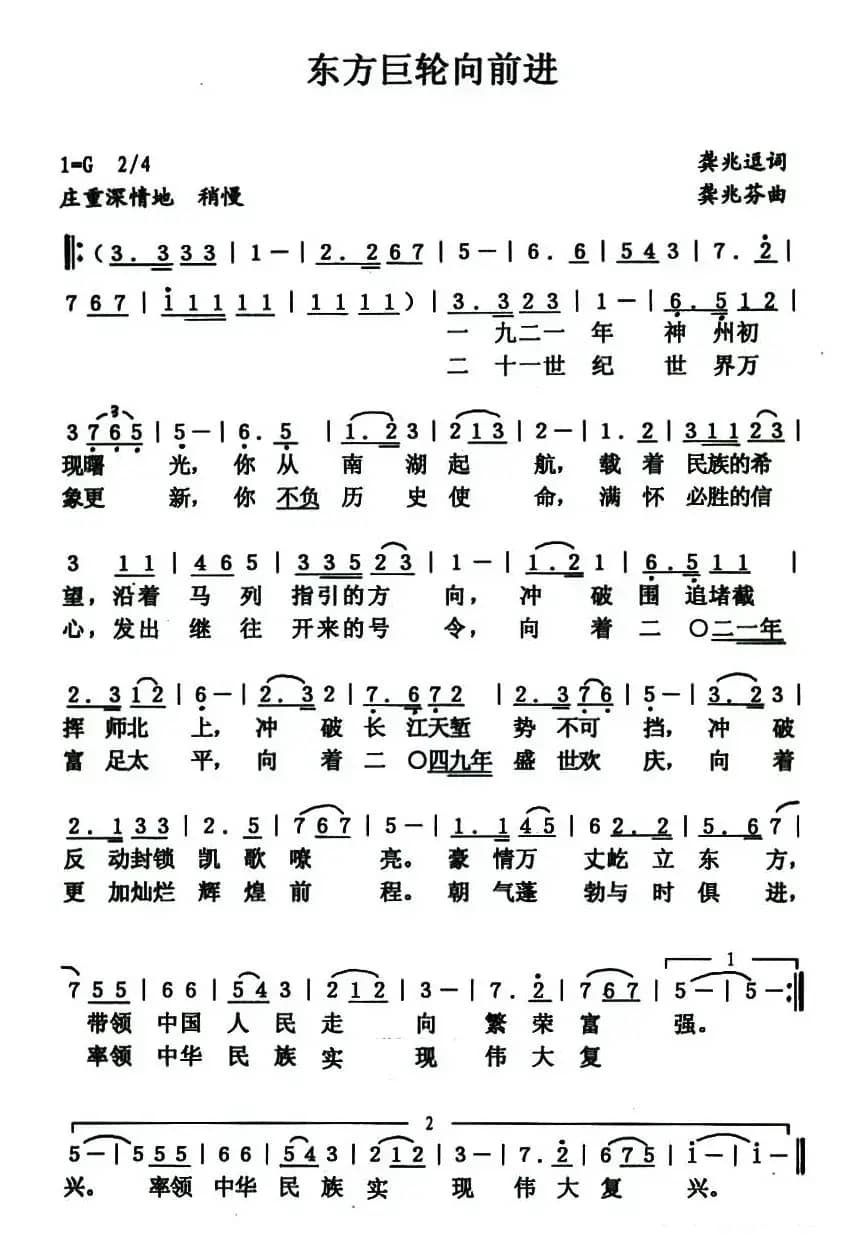 东方巨轮向前进
1=G 2/4 龚兆逗词
庄重深情地 稍慢 龚兆芬曲
‖:（3. 3 3 3 | 1 - | 2. 2 6 7 | 5 - | 6. 6 | 5 4 3 | 7. 2 |
7 6 7 | i 1 1 1 1 1 | 1 1 1 1）| 3. 3 2 3 | 1 - | 6. 5 1 2 |
一 九二一 年 神 州初
二 十一世 纪 世 界万
3
3 7 6 5 | 5 - | 6. 5 | 1. 2 3 | 2 1 3 | 2 - | 1. 2 | 3 1 1 2 3 |
现曙 光，你 从 南 湖起 航，载 着 民族的希
象更 新，你 不负 历 史使 命，满 怀 必胜的信
3 1 1 | 4 6 5 | 3 3 5 2 3 | 1 - | 1. 2 1 | 6. 5 1 1 |
望，沿着 马 列 指引的方 向，冲 破 围 追堵截
心，发出 继 往 开来的号 令，向 着 二 〇二一年
2. 3 1 2 | 6 - | 2. 3 2 | 7. 6 7 2 | 2. 3 7 6 | 5 - | 3. 2 3 |
挥 师北 上，冲 破 长 江天堑 势 不可 挡，冲 破
富 足太 平，向 着 二 〇四九年 盛 世欢 庆，向 着
2. 1 3 3 | 2. 5 | 7 6 7 | 5 - | 1. 1 4 5 | 6 2. 2 | 5. 6 7 |
反 动封锁 凯 歌 嘹 亮。豪 情万 丈屹 立 东 方，
更 加灿烂 辉 煌 前 程。朝 气蓬 勃与 时 俱 进，
1
7 5 5 | 6 6 | 5 4 3 | 2 1 2 | 3 - | 7. 2 | 7 6 7 | 5 - | 5 - :‖
带领 中国 人 民 走 向 繁 荣 富 强。
率领 中华 民 族 实 现 伟 大 复
2
5 - | 5 5 5 | 6 6 | 5 4 3 | 2 1 2 | 3 - | 7. 2 | 6 7 5 | i - | i - ‖
兴。 率领 中华 民 族 实 现 伟 大 复 兴。